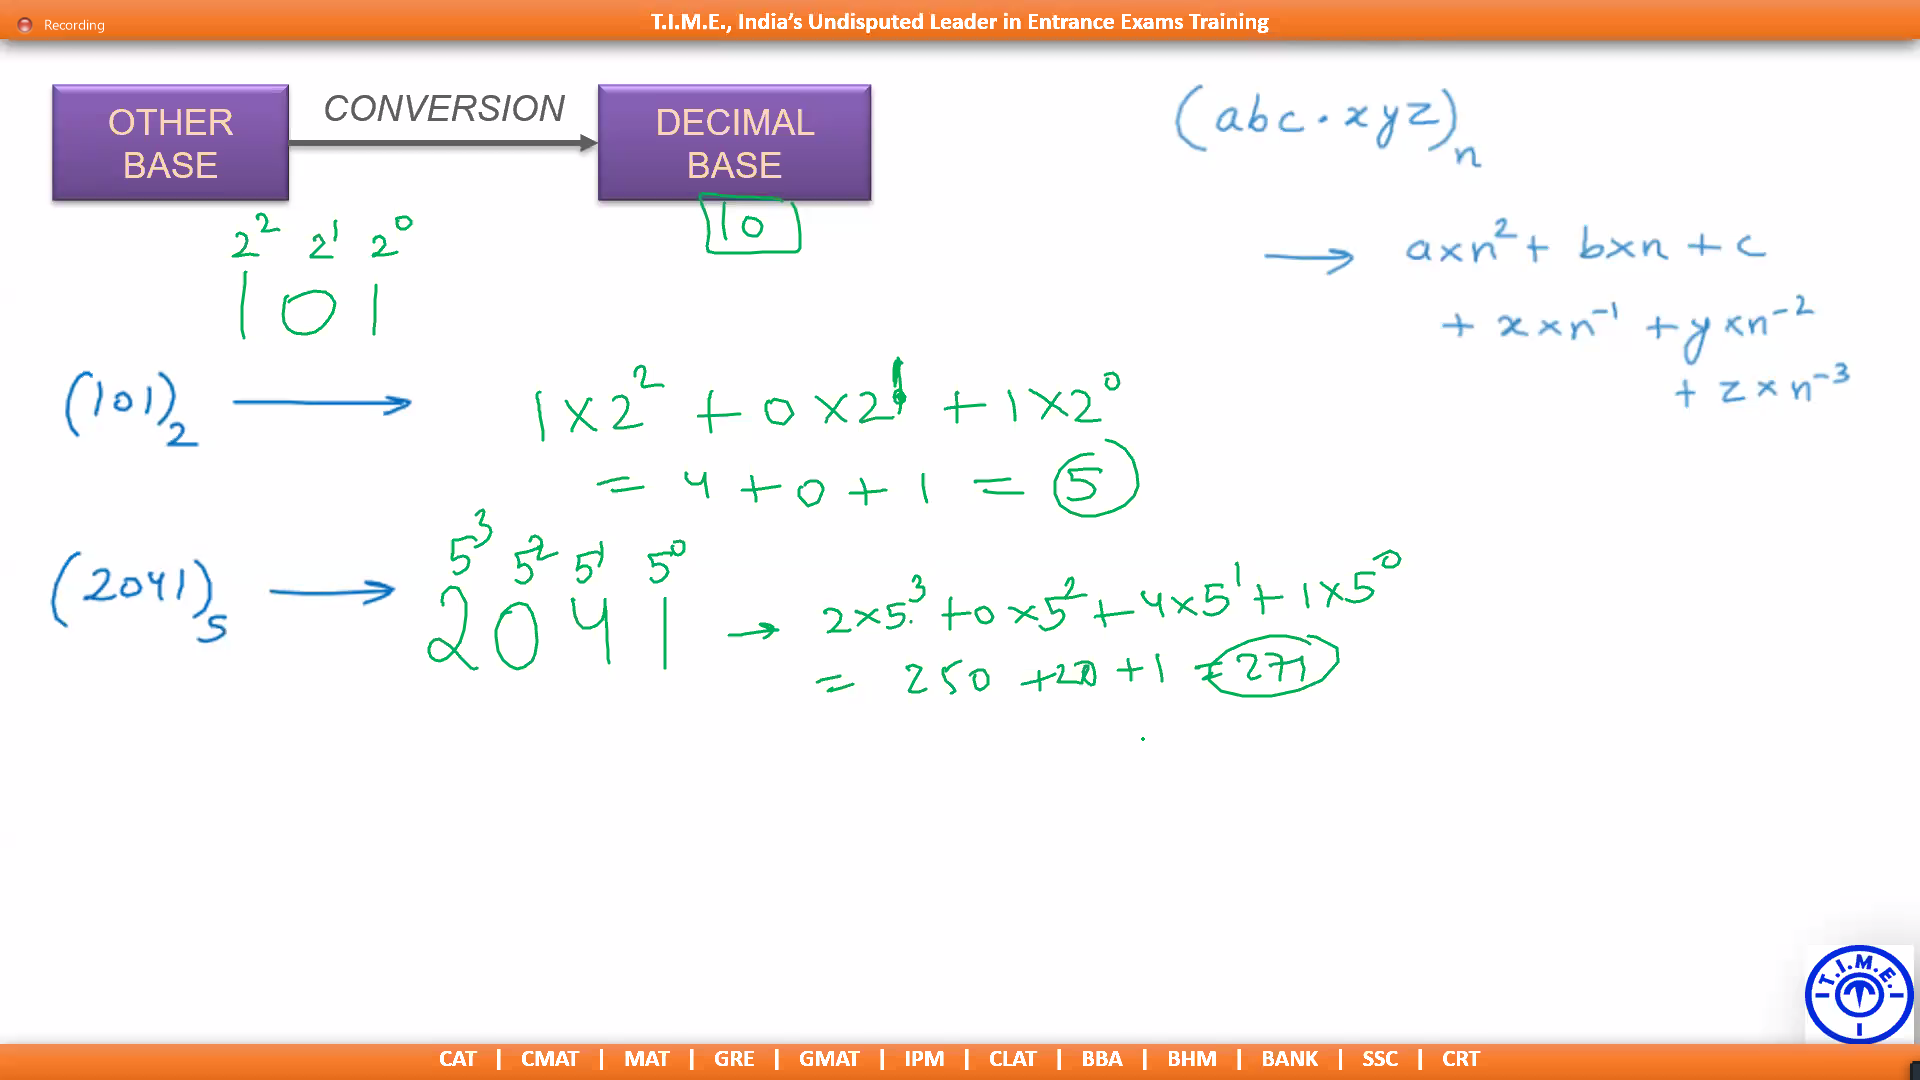 Recording
T.I.M.E., India's Undisputed Leader in Entrance Exams Training
OTHER BASE
CONVERSION
DECIMAL BASE
10
(abc.xyz)ₙ
→ a×n² + b×n + c
+ x×n⁻¹ + y×n⁻²
+ z×n⁻³
2² 2¹ 2⁰
1 0 1
(101)₂ → 1×2² + 0×2¹ + 1×2⁰
= 4+0+1 = 5
5³ 5² 5¹ 5⁰
(2041)₅ → 2041 → 2×5³+0×5²+4×5¹+1×5⁰
= 250 +20 +1 = 271
T.I.M.E.
CAT | CMAT | MAT | GRE | GMAT | IPM | CLAT | BBA | BHM | BANK | SSC | CRT